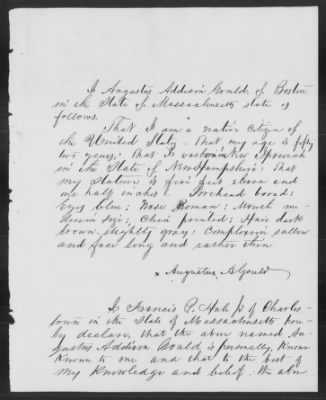 I Augustus Addison Gould, of Boston
in the State of Massachusetts state as
follows.
That I am a native citizen of
the United States. That my age is fifty
two years; that I was born in New Ipswich
in the State of New Hampshire; that
my stature is five feet eleven and
one half inches: Forehead broad:
Eyes blue: Nose Roman: Mouth me-
dium size; Chin pointed: Hair dark
brown, slightly gray: Complexion sallow
and face long and rather thin
Augustus A Gould
I Francis P. Hale Jr of Charles-
town in the State of Massachusetts here-
by declare, that the above named Au-
gustus Addison Gould is personally known
known to me and that to the best of
my knowledge and belief the abov